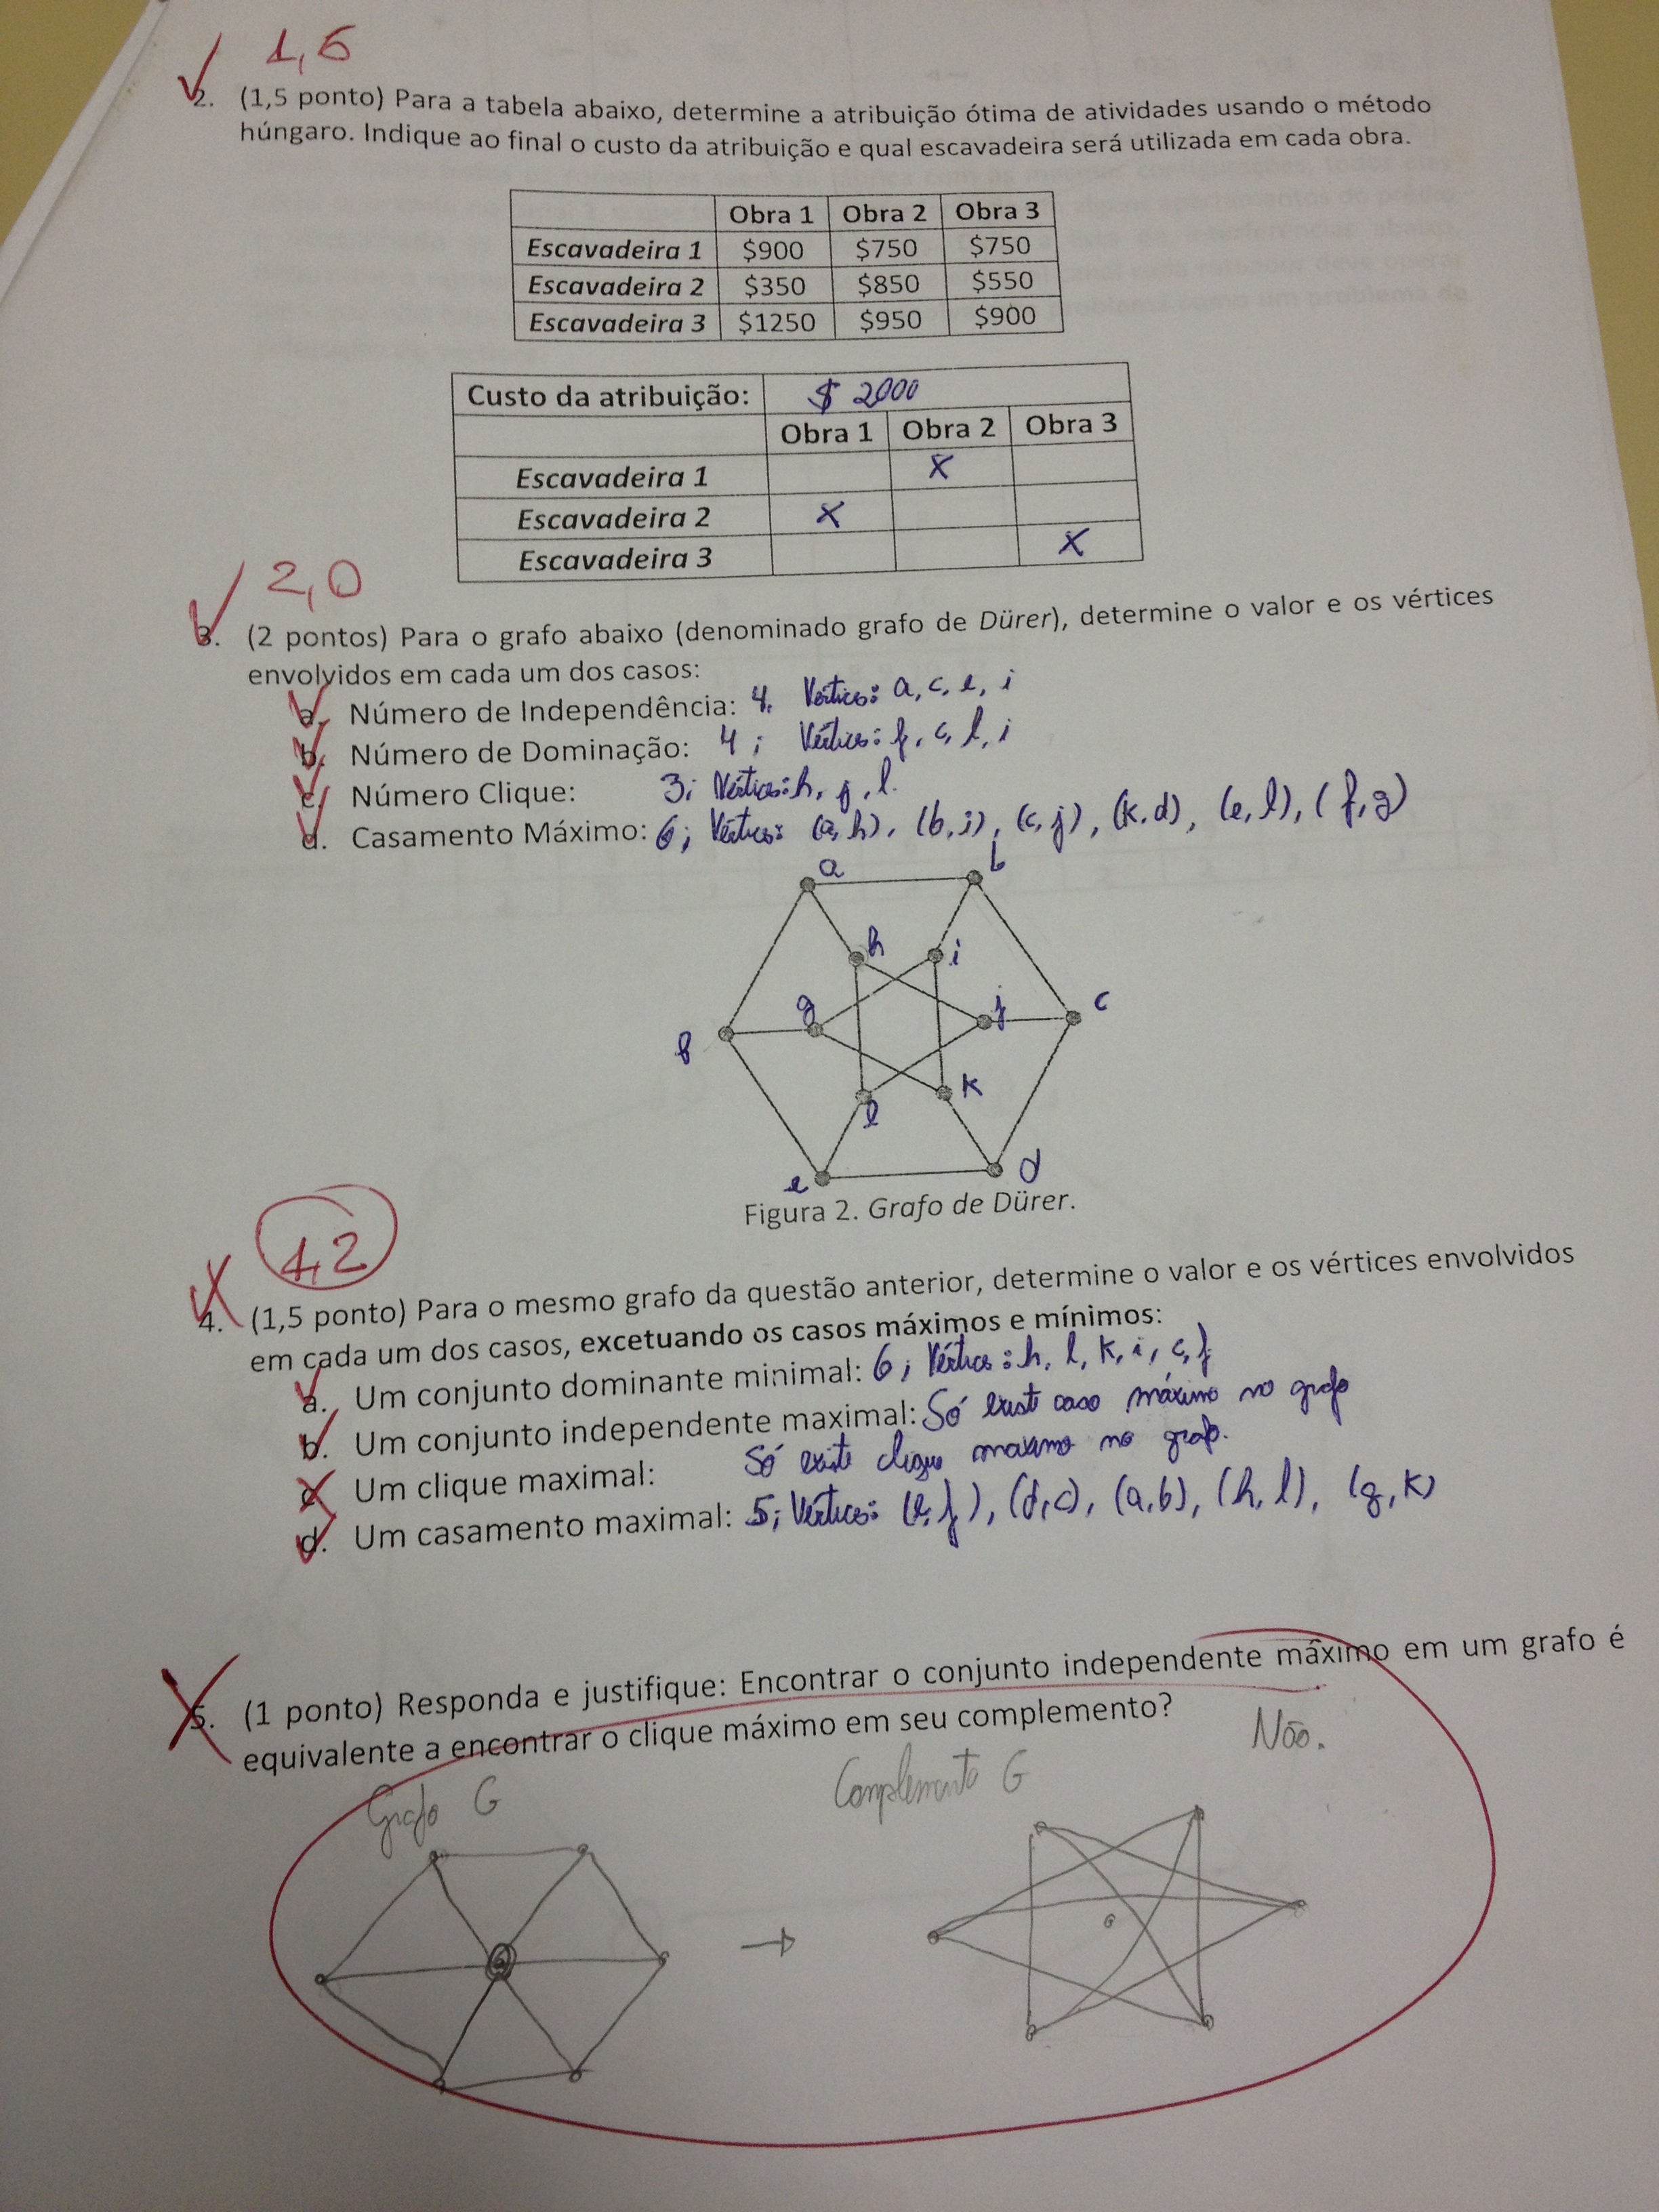 1,5
2. (1,5 ponto) Para a tabela abaixo, determine a atribuição ótima de atividades usando o método
húngaro. Indique ao final o custo da atribuição e qual escavadeira será utilizada em cada obra.
Obra 1 Obra 2 Obra 3
Escavadeira 1 $900 $750 $750
Escavadeira 2 $350 $850 $550
Escavadeira 3 $1250 $950 $900
Custo da atribuição: $ 2000
Obra 1 Obra 2 Obra 3
Escavadeira 1 X
Escavadeira 2 X
Escavadeira 3 X
2,0
3. (2 pontos) Para o grafo abaixo (denominado grafo de Dürer), determine o valor e os vértices
envolvidos em cada um dos casos:
a. Número de Independência: 4. Vértices: a, c, e, i
b. Número de Dominação: 4; Vértices: f, c, l, i
c. Número Clique: 3; Vértices: h, j, l.
d. Casamento Máximo: 6; Vértices: (a,h), (b,i), (c,j), (k,d), (e,l), (f,g)
a b
h i
g j c
f
l k
e d
Figura 2. Grafo de Dürer.
1,2
4. (1,5 ponto) Para o mesmo grafo da questão anterior, determine o valor e os vértices envolvidos
em cada um dos casos, excetuando os casos máximos e mínimos:
a. Um conjunto dominante minimal: 6; Vértices: h, l, k, i, c, f
b. Um conjunto independente maximal: Só existe caso máximo no grafo
c. Um clique maximal: Só existe clique maximo no grafo.
d. Um casamento maximal: 5; Vértices: (e,f), (d,c), (a,b), (h,l), (g,k)
5. (1 ponto) Responda e justifique: Encontrar o conjunto independente máximo em um grafo é
equivalente a encontrar o clique máximo em seu complemento? Não.
Grafo G Complemento G